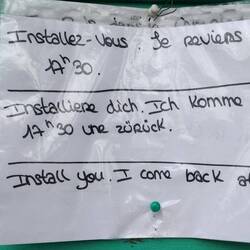 Installez-vous. Je reviens
17h30.
Installiere dich. Ich komme
17h30 Uhr zürück.
Install you. I come back at